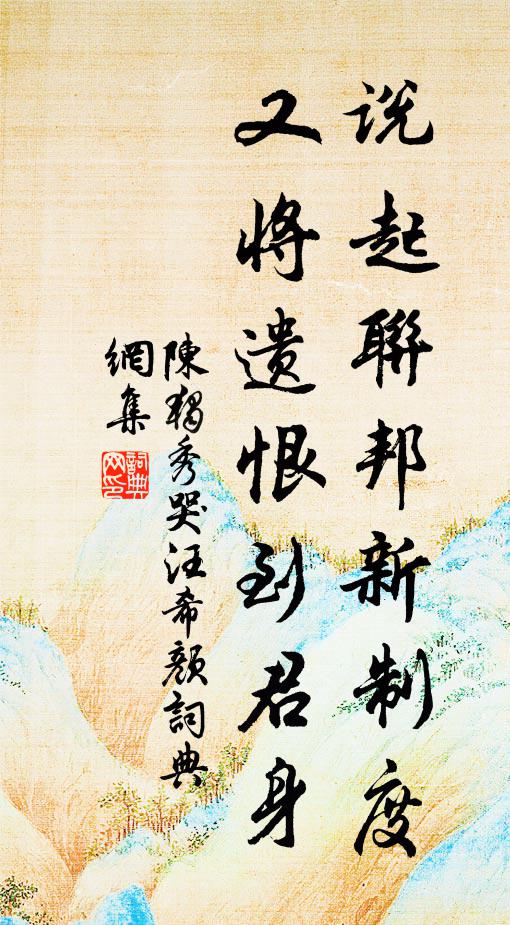 说起聯邦新制度
又将遗恨到君身
陳獨秀哭汪希颜詞典
網集
詞典網印